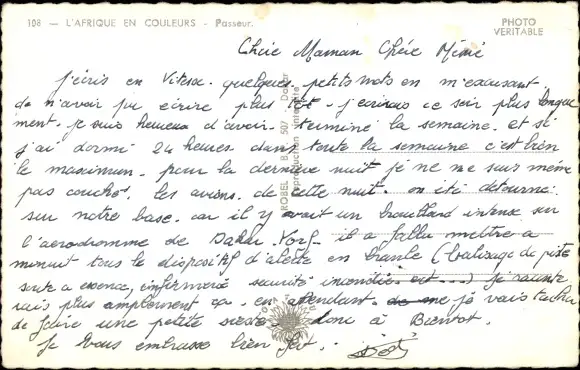 108 — L'AFRIQUE EN COULEURS - Passeur.
PHOTO
VERITABLE
Chère Maman Chère Mémé
J'écris en Vitesse quelques petits mots en m'excusant
de n'avoir pu écrire plus tôt. J'écrirais ce soir plus longue
ment. Je suis heureux d'avoir terminé la semaine. et si
j'ai dormi 24 heures dans toute la semaine c'est bien
le maximum. pour la dernière nuit je ne me suis même
pas couché. les avions de cette nuit on été détourné
sur notre base. car il y avait un brouillard intense sur
l'aérodromme de Dakar Yorf. il a fallu mettre a
minuit tous le dispositif d'alerte en branle (balisage de piste
essence, infirmerie sécurité incendie est....) Je raconte
rais plus amplement ça. en attendant je vais tacher
de faire une petite sieste donc à Bientot.
Je Vous embrasse bien fort.
ROBEL B.P. 507 Dakar
Reproduction interdite